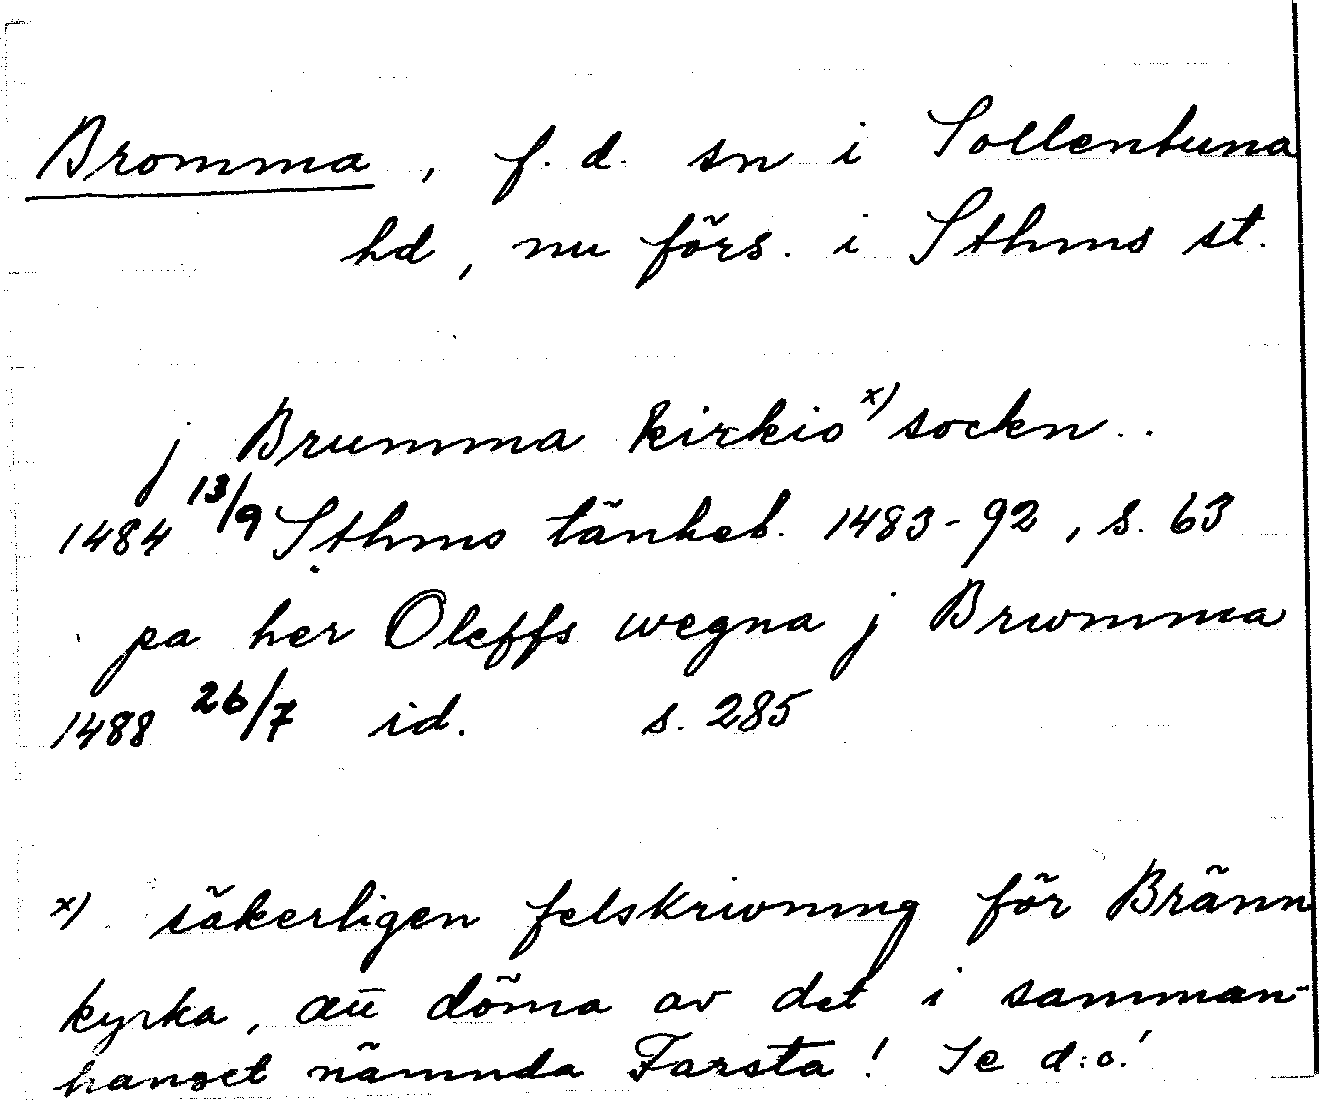 Bromma, f. d. sn i Sollentuna
hd, nu förs. i Sthms st.
j Brumma kirkio x) sockn..
1484 13/9 Sthms tänkeb. 1483-92, s. 63
pa her Oleffs wegna j Brwmma
1488 26/7 id. s. 285
x) säkerligen felskrivning för Bränn
kyrka, att döma av det i samman-
hanget nämnda Farsta! Se d:o!